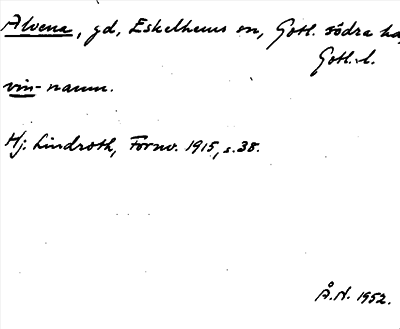 Alvena, gd, Eskelhems sn, Gotl. södra hd,
Gotl. l.
vin-namn.
Hj. Lindroth, Fornv. 1915, s. 38.
Å.N. 1952.